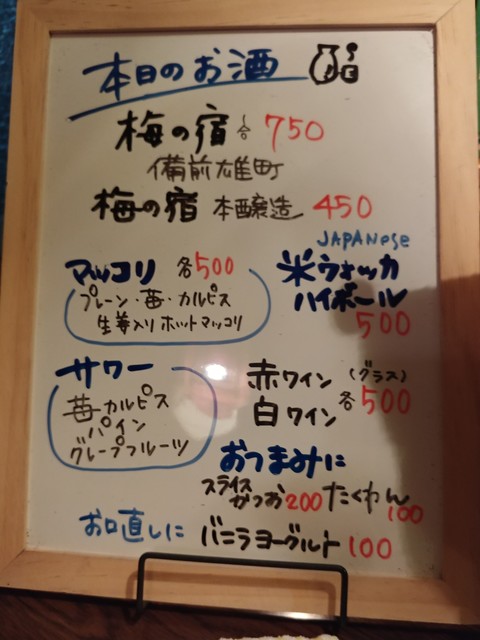 本日のお酒
梅の宿 一合 750
備前雄町
梅の宿 本醸造 450
マッコリ 各500
プレーン・苺・カルピス
生姜入りホットマッコリ
JAPANese
米ウォッカ
ハイボール
500
サワー
苺カルピス
パイン
グレープフルーツ
赤ワイン (グラス)
白ワイン 各500
おつまみに
スライスかつお200 たくわん100
お口直しに バニラヨーグルト100